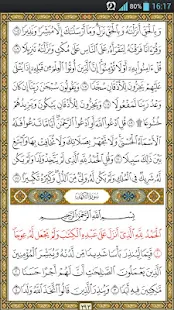 80% 16:17
وَبِالْحَقِّ أَنزَلْنَاهُ وَبِالْحَقِّ نَزَلَ وَمَا أَرْسَلْنَاكَ إِلَّا مُبَشِّرًا وَنَذِيرًا
وَقُرْءَانًا فَرَقْنَاهُ لِتَقْرَأَهُ عَلَى النَّاسِ عَلَىٰ مُكْثٍ وَنَزَّلْنَاهُ تَنزِيلًا
قُلْ ءَامِنُوا بِهِ أَوْ لَا تُؤْمِنُوا إِنَّ الَّذِينَ أُوتُوا الْعِلْمَ مِن قَبْلِهِ
إِذَا يُتْلَىٰ عَلَيْهِمْ يَخِرُّونَ لِلْأَذْقَانِ سُجَّدًا وَيَقُولُونَ سُبْحَانَ رَبِّنَا
إِن كَانَ وَعْدُ رَبِّنَا لَمَفْعُولًا وَيَخِرُّونَ لِلْأَذْقَانِ يَبْكُونَ
وَيَزِيدُهُمْ خُشُوعًا قُلِ ادْعُوا اللَّهَ أَوِ ادْعُوا الرَّحْمَٰنَ أَيًّا مَّا تَدْعُوا فَلَهُ
الْأَسْمَاءُ الْحُسْنَىٰ وَلَا تَجْهَرْ بِصَلَاتِكَ وَلَا تُخَافِتْ بِهَا وَابْتَغِ
بَيْنَ ذَٰلِكَ سَبِيلًا وَقُلِ الْحَمْدُ لِلَّهِ الَّذِي لَمْ يَتَّخِذْ وَلَدًا وَلَمْ يَكُن
لَّهُ شَرِيكٌ فِي الْمُلْكِ وَلَمْ يَكُن لَّهُ وَلِيٌّ مِّنَ الذُّلِّ وَكَبِّرْهُ تَكْبِيرًا
سُورَةُ الْكَهْفِ
بِسْمِ اللَّهِ الرَّحْمَٰنِ الرَّحِيمِ
الْحَمْدُ لِلَّهِ الَّذِي أَنزَلَ عَلَىٰ عَبْدِهِ الْكِتَابَ وَلَمْ يَجْعَل لَّهُ عِوَجًا
قَيِّمًا لِّيُنذِرَ بَأْسًا شَدِيدًا مِّن لَّدُنْهُ وَيُبَشِّرَ الْمُؤْمِنِينَ
الَّذِينَ يَعْمَلُونَ الصَّالِحَاتِ أَنَّ لَهُمْ أَجْرًا حَسَنًا
مَّاكِثِينَ فِيهِ أَبَدًا وَيُنذِرَ الَّذِينَ قَالُوا اتَّخَذَ اللَّهُ وَلَدًا
٢٩٣